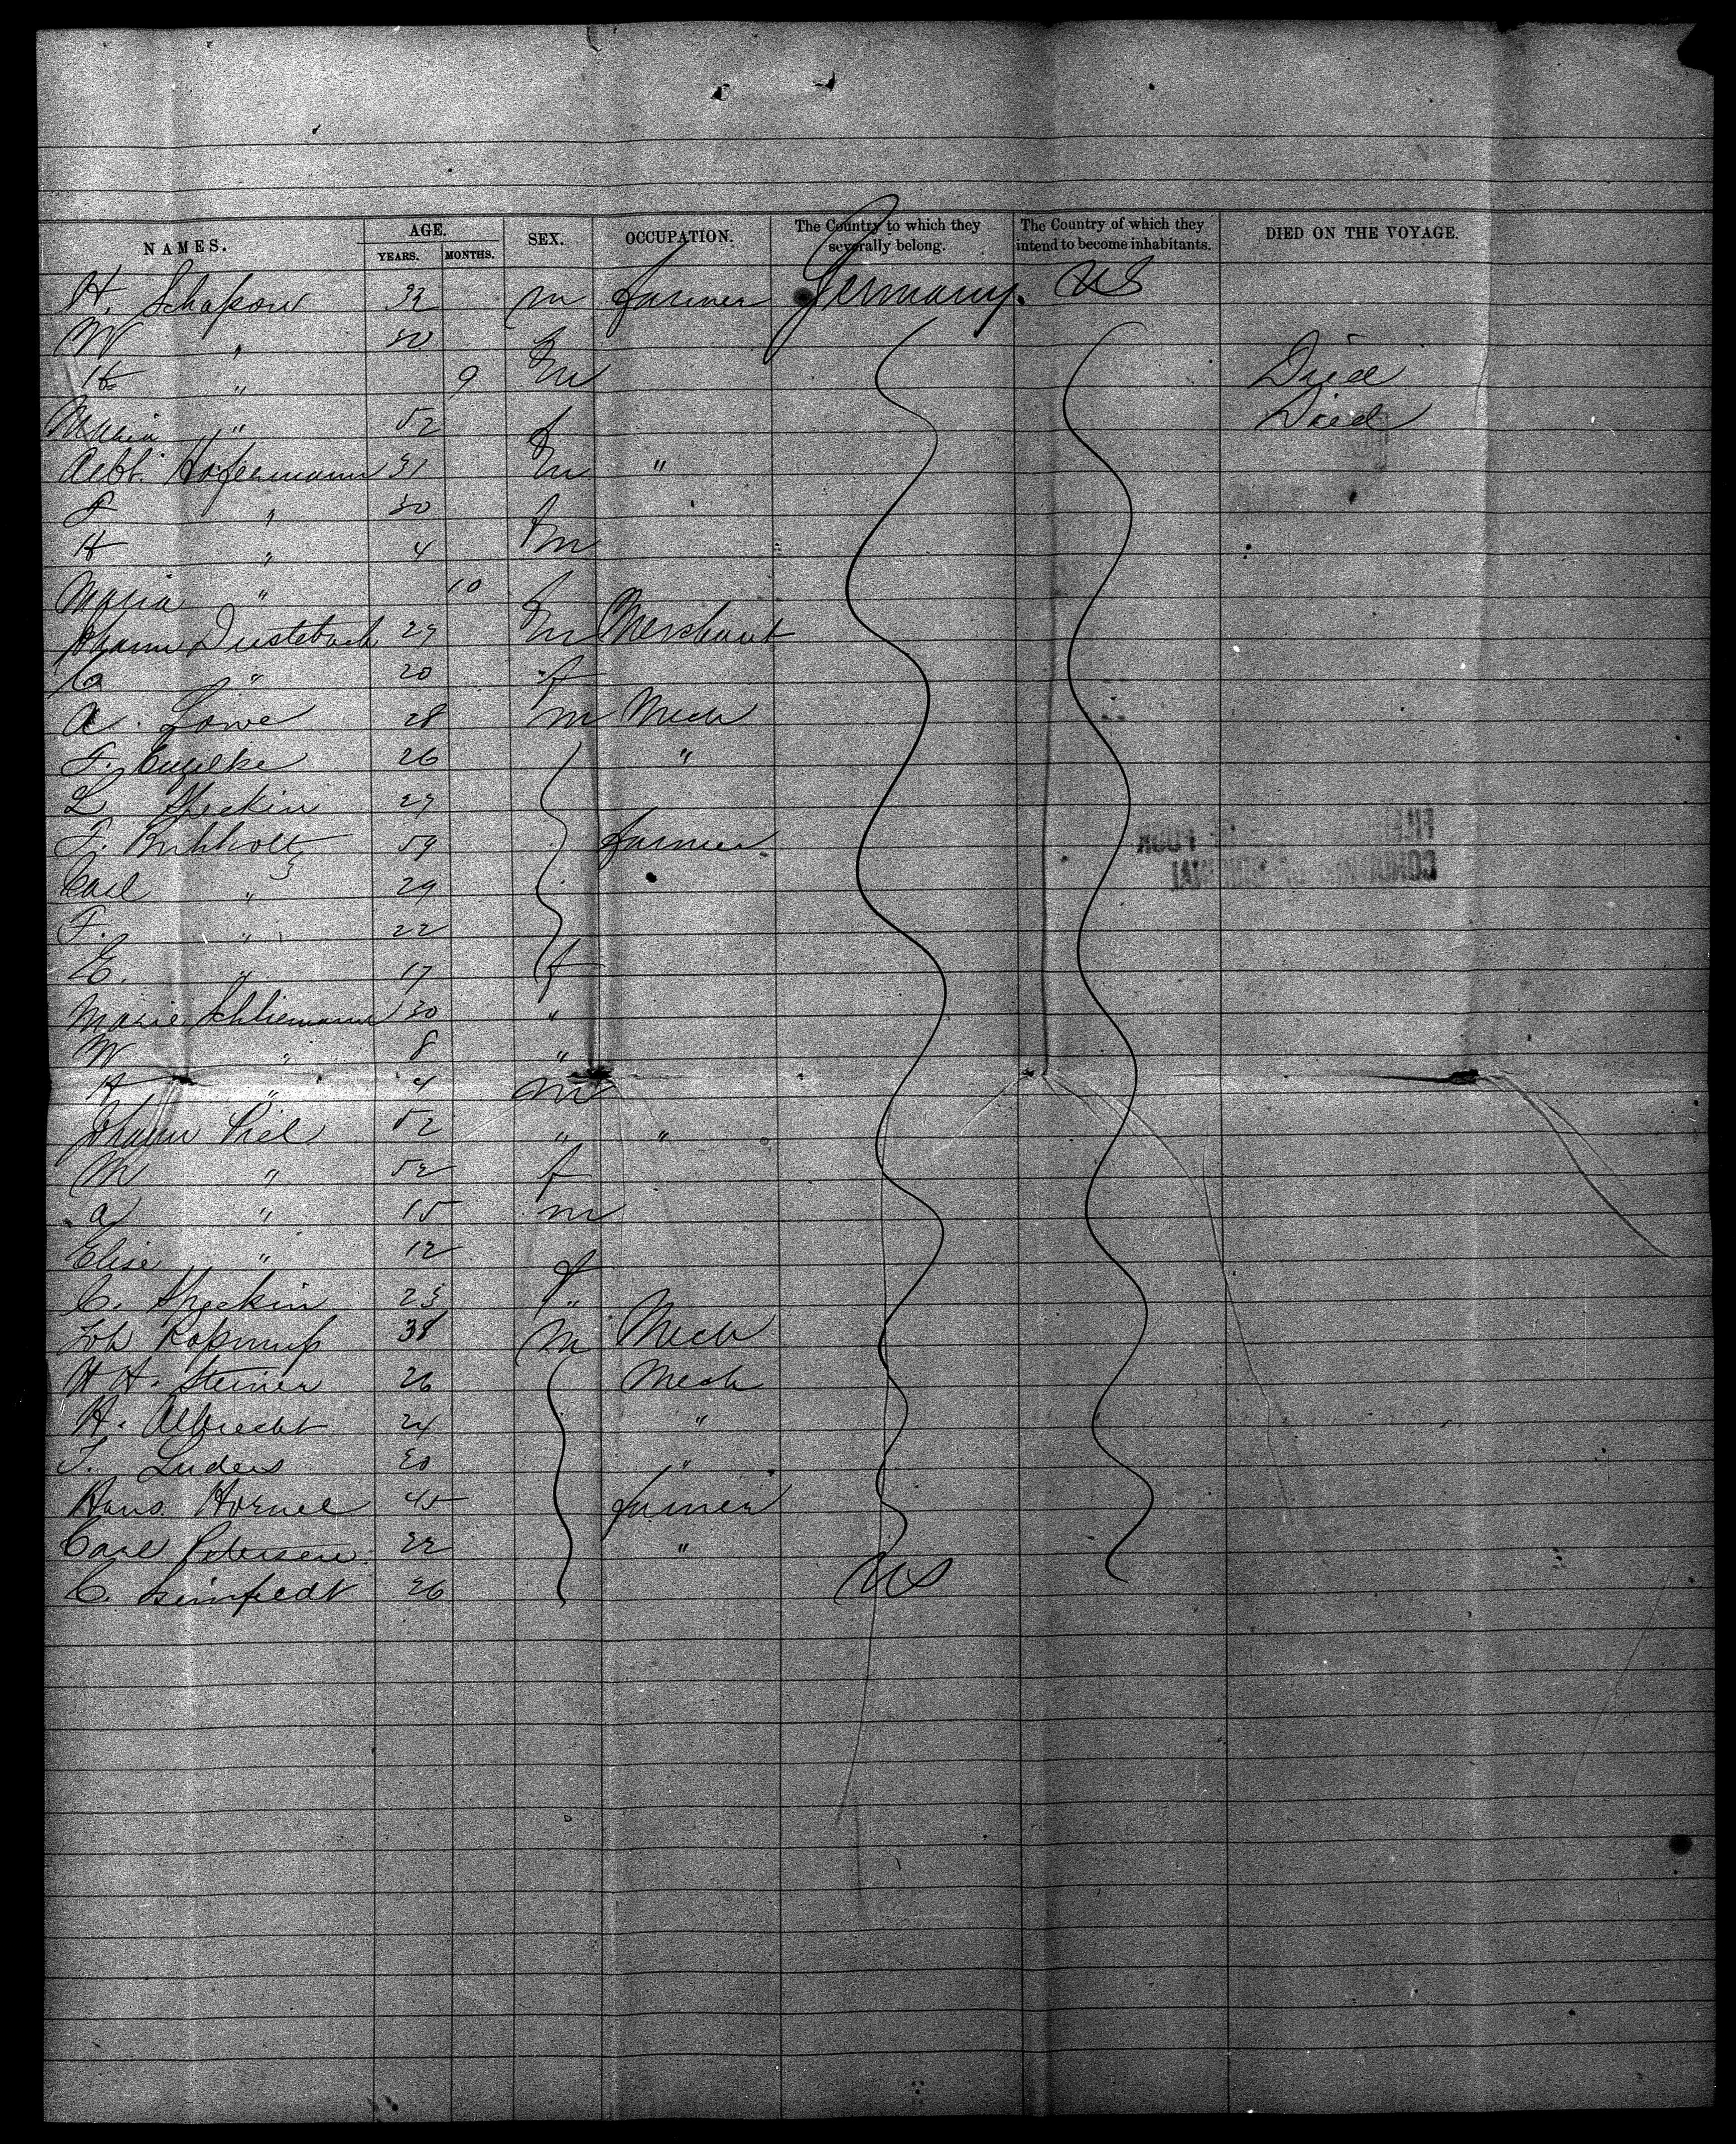 NAMES. AGE. YEARS. MONTHS. SEX. OCCUPATION. The Country to which they severally belong. The Country of which they intend to become inhabitants. DIED ON THE VOYAGE.
H. Schapow 32 m farmer Germany. US
W " 30 f
H " 9 m Died
Maria " 52 f Died
Hofermann 31 m "
F " 30 f
H " 4 m
Maria " 10 f
Johann Dustebach 29 m Merchant
C " 20 f
A. Lowe 28 m Mech
F. Engelke 26 "
L Speckin 29
F. Buhholtz 59 farmer
Carl " 29
F. " 22
E. " 17 f
Marie Schliemann 30 "
W " 8 "
H " 4 m
Johann Piel 52 " "
M " 52 f
A " 15 m
Elise " 12 f
C. Speckin 23 "
Joh 38 m Mech
H H. Steiner 26 Mech
H. Albrecht 24 "
Luders 20 "
Hans Hornel 45 farmer
Carl Petersen 22 "
C. 26 US